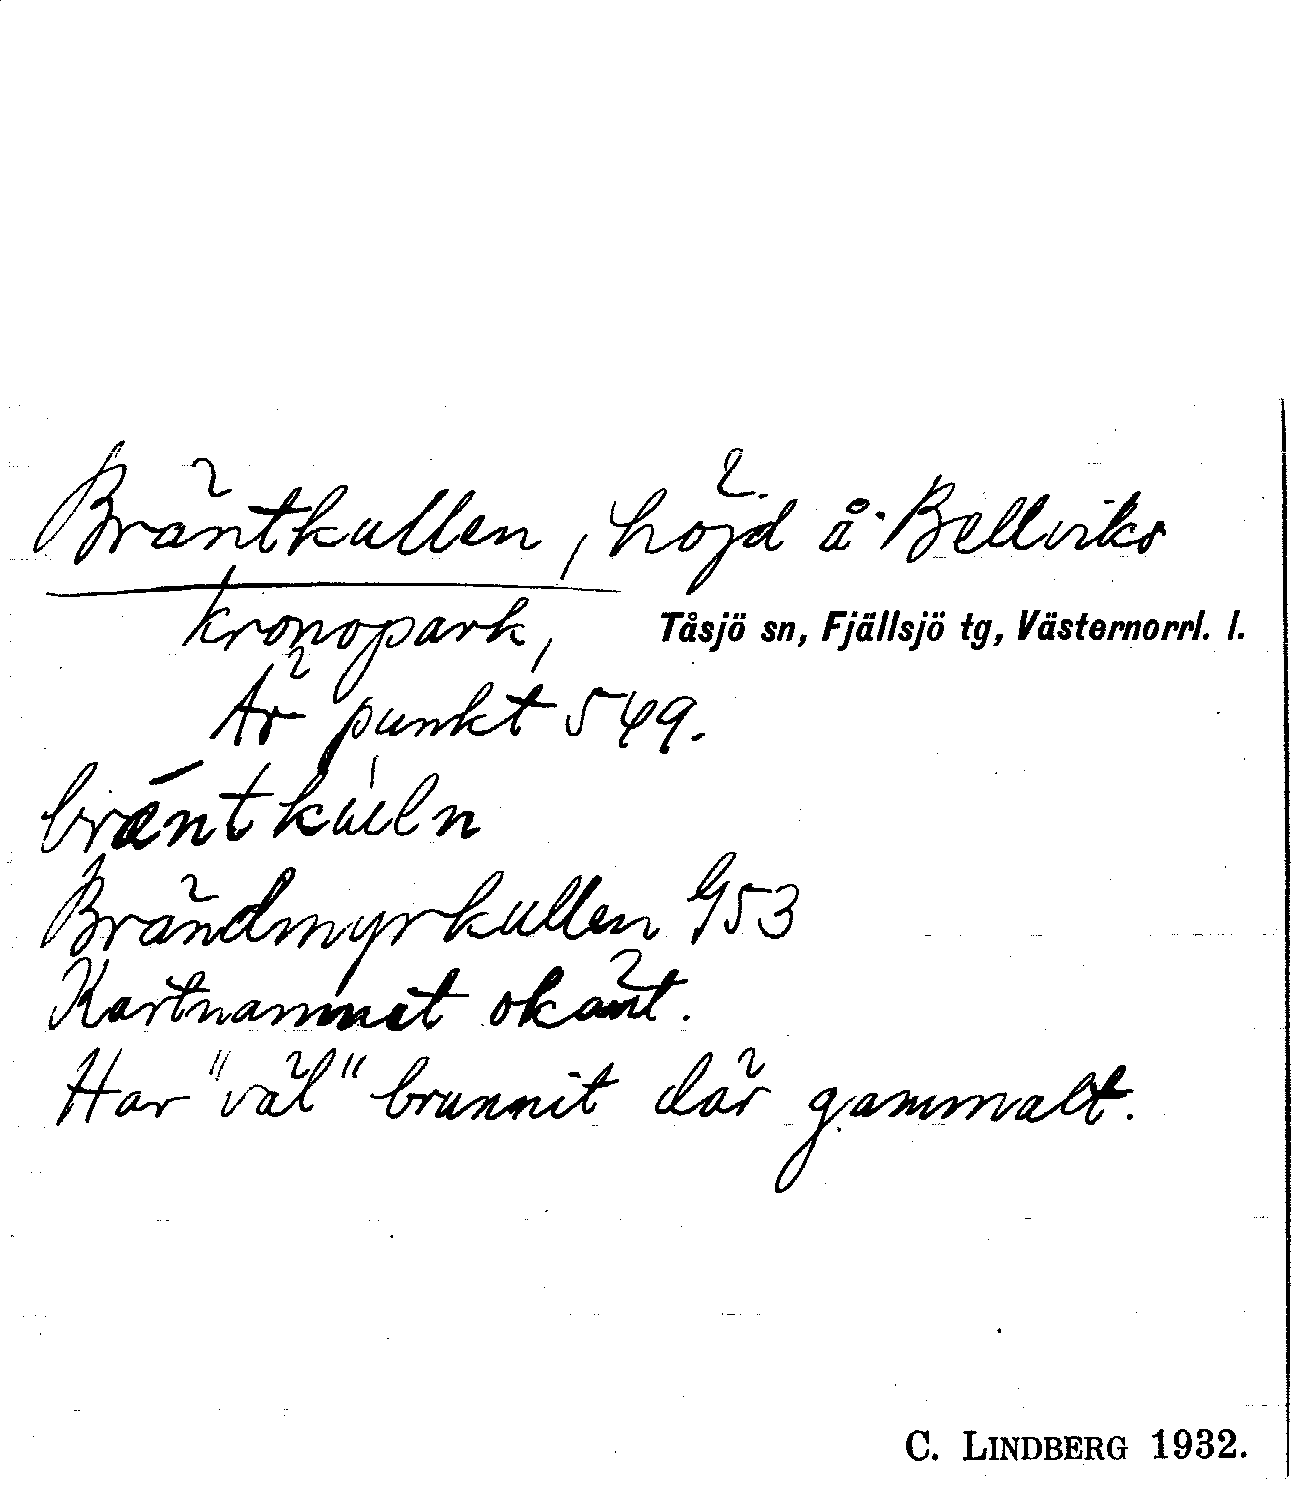 Bräntkullen, höjd å Bellviks
kronopark, Tåsjö sn, Fjällsjö tg, Västernorrl. l.
Är punkt 549.
bräntkúlln
Brändmyrkullen G53
Kartnamnet okänt.
Har "väl" brunnit där gammalt.
C. LINDBERG 1932.